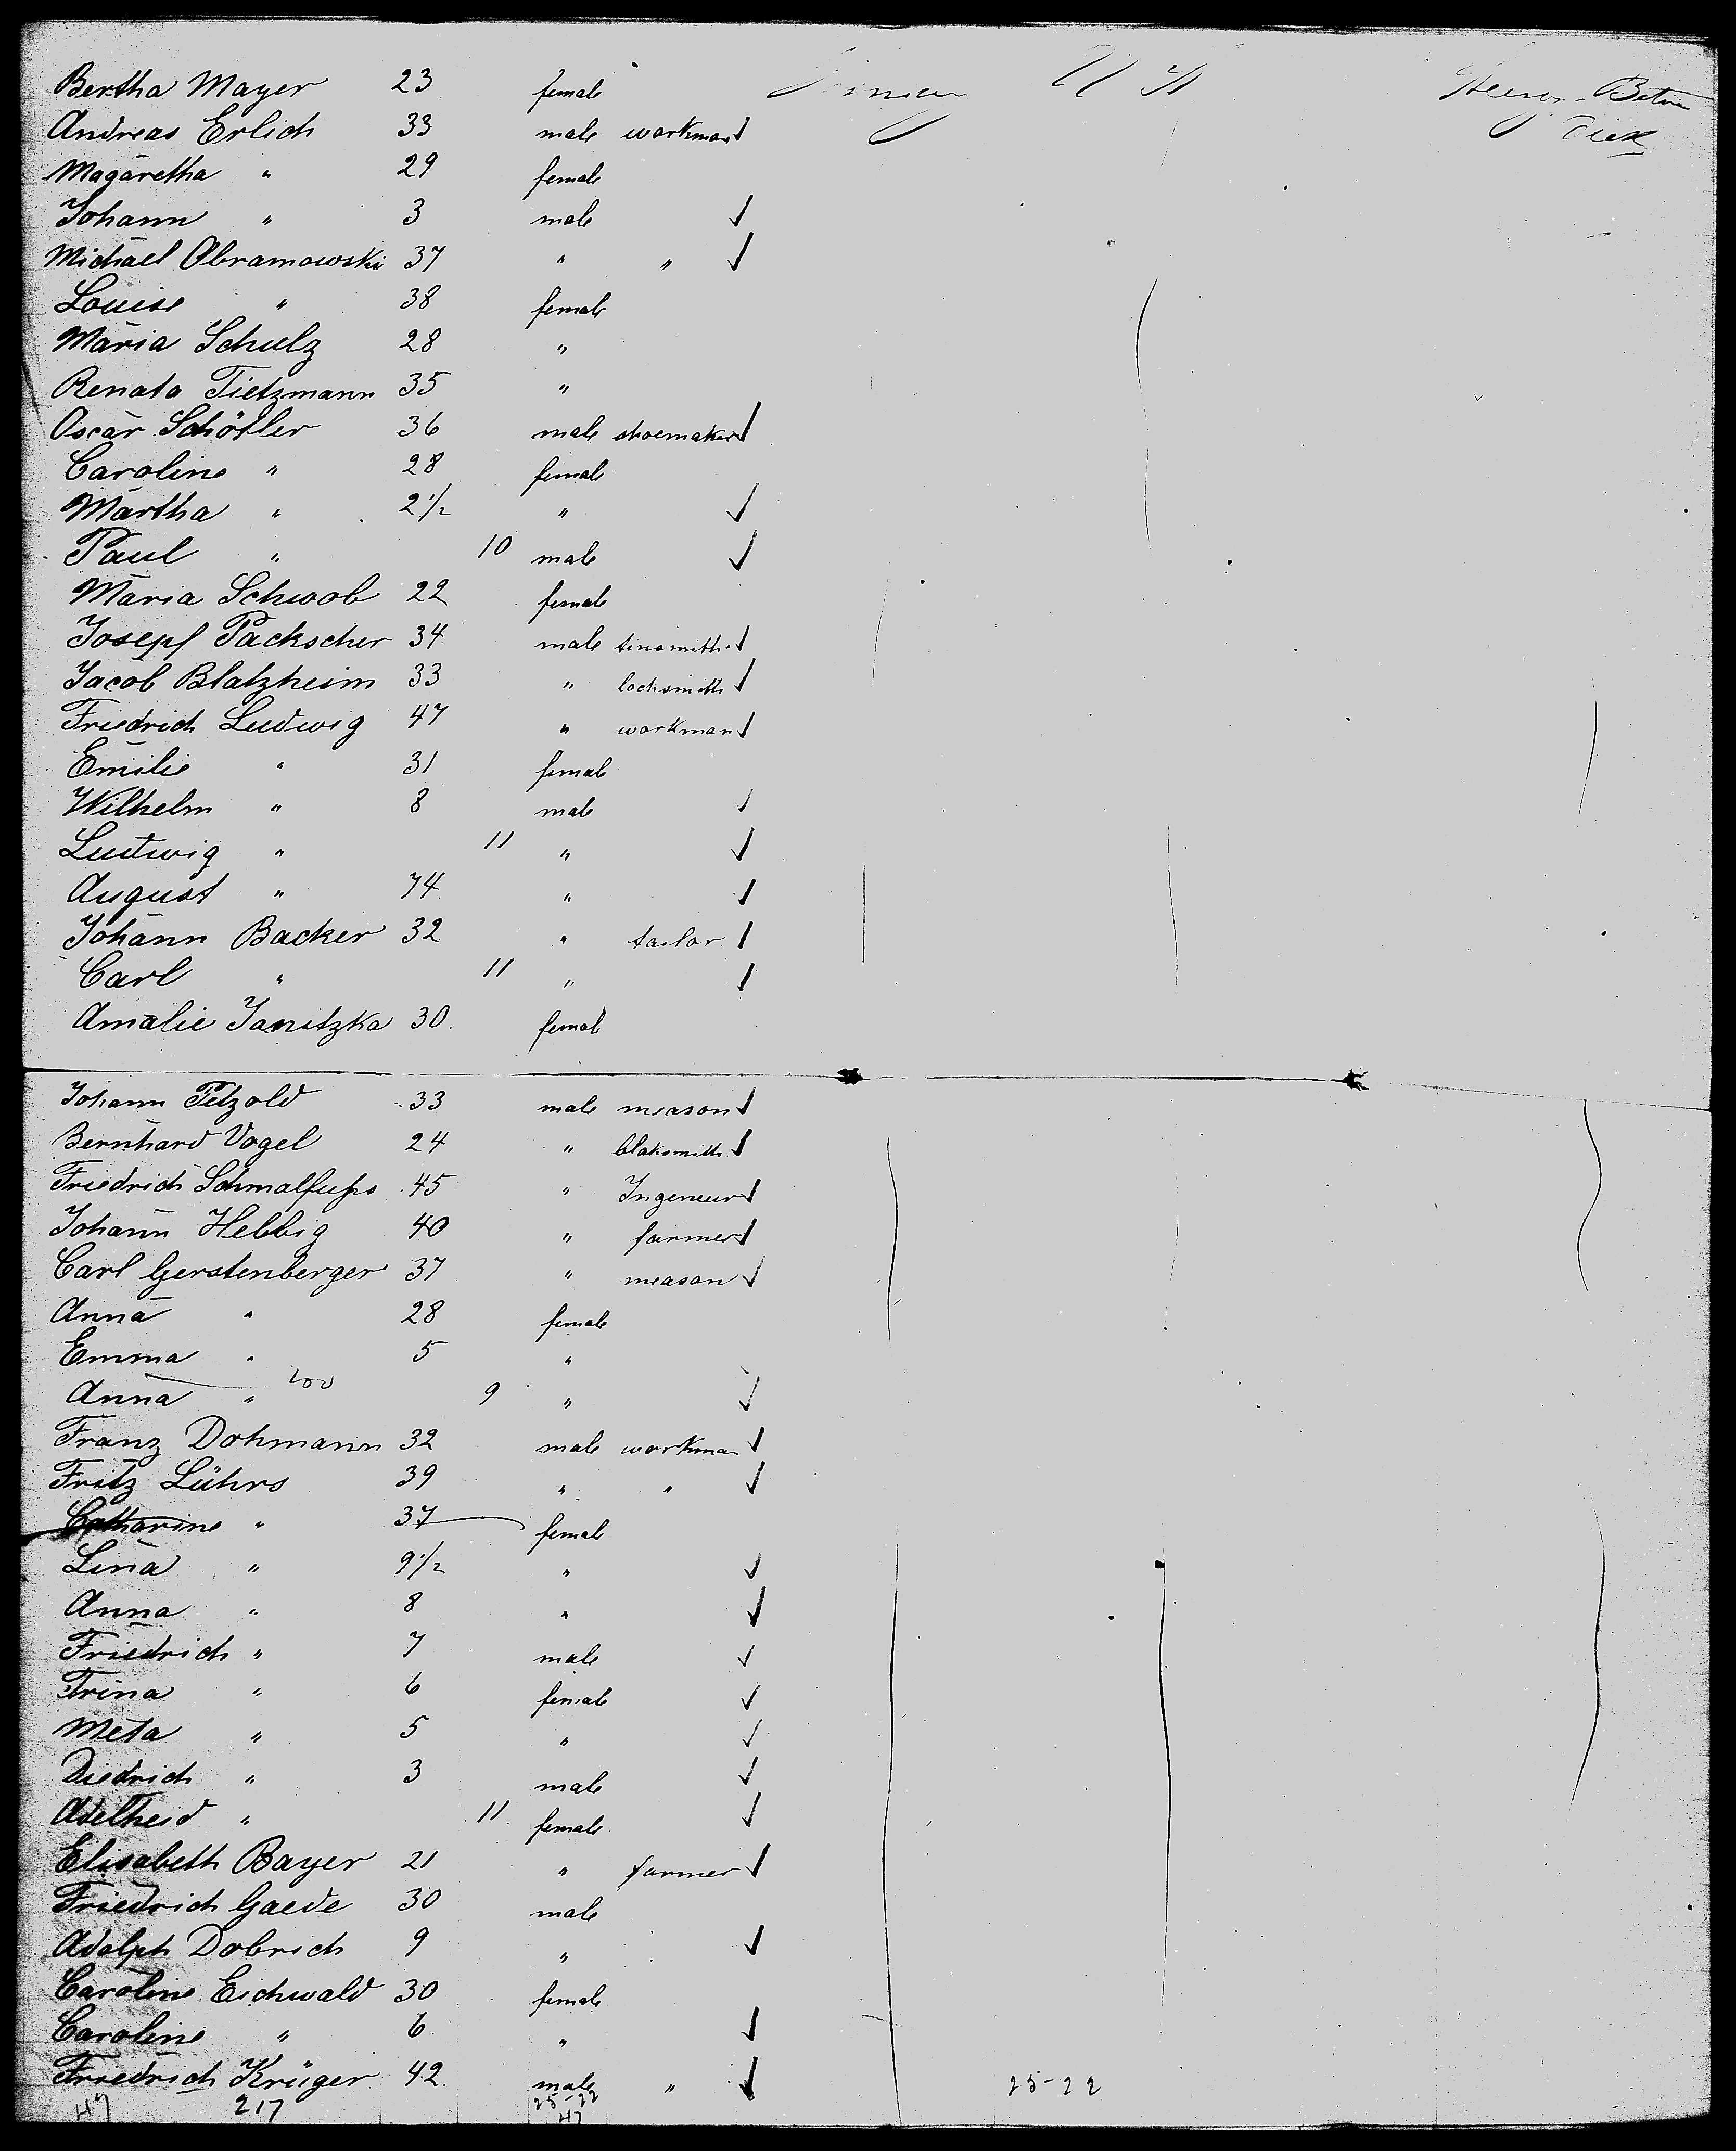 Bertha Mayer 23 female
Andreas Erlich 33 male workman
Magaretha " 29 female
Johann " 3 male
Michael Abramowski 37 " "
Louise " 38 female
Maria Schulz 28 "
Renata Tietzmann 35 "
Oscar Schötler 36 male shoemaker
Caroline " 28 female
Martha " 2 1/2 "
Paul " 10 male
Maria Schwob 22 female
Josepf Packscher 34 male tinsmith
Jacob Blatzheim 33 " locksmith
Friedrich Ludwig 47 " workman
Emilie " 31 female
Wilhelm " 8 male
Ludwig " 11 "
August " 74 "
Johann Backer 32 " tailor
Carl " 11 "
Amalie Janitzka 30 female
Johann Petzold 33 male meason
Bernhard Vogel 24 " blaksmith
Friedrich Schmalfuhs 45 " Ingeneur
Johann Helbig 40 " farmer
Carl Gerstenberger 37 " meason
Anna " 28 female
Emma " 5 "
Anna " 9 "
Franz Dohmann 32 male workman
Fritz Lührs 39 " "
Catharine " 37 female
Lina " 9 1/2 "
Anna " 8 "
Friedrich " 7 male
Trina " 6 female
Meta " 5 "
Diedrich " 3 male
Adelheid " 11 female
Elisabeth Bayer 21 " farmer
Friedrich Gaede 30 male
Adolph Dobrich 9 "
Caroline Eichwald 30 female
Caroline " 6 "
Friedrich Krüger 42 male "
47 217 25-22 25-22
47